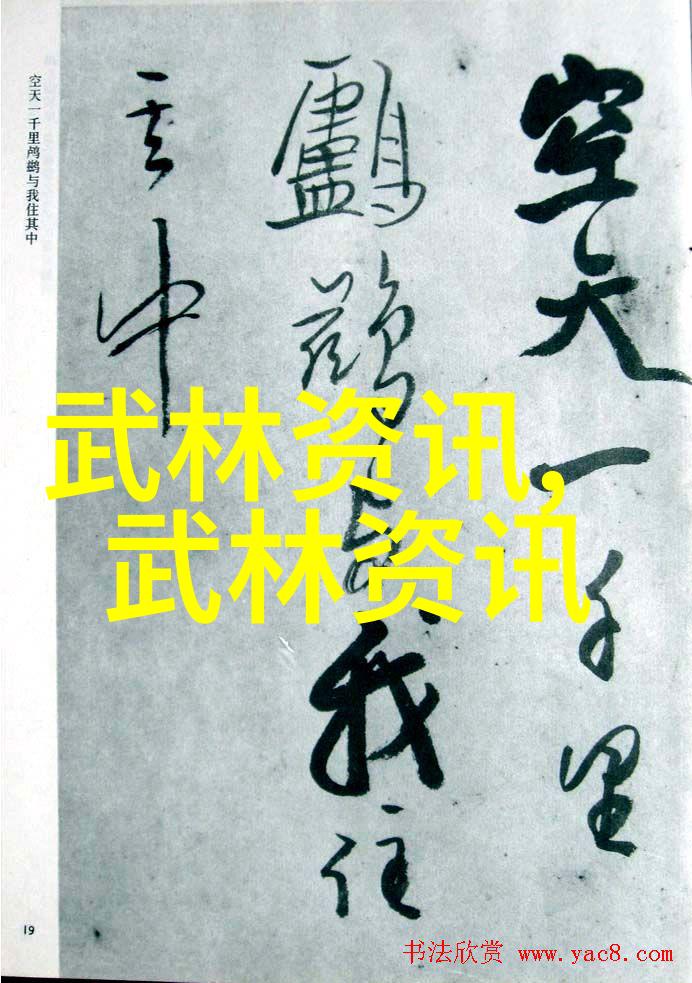 空天一千里
鸕鷀与我住
其中
空天一千里鸬鹚与我住其中
武林资讯,
武林资讯
19
书法欣赏 www.yac8.com